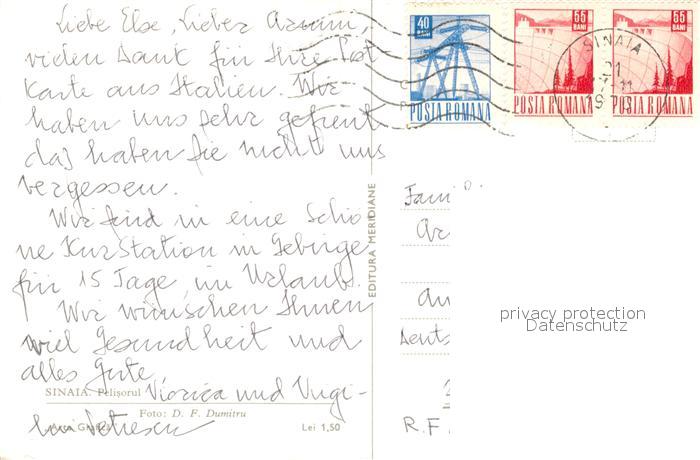 Liebe Else, Lieber Arnim,
vielen Dank für Ihre Post
Karte aus Italien. Wir
haben uns sehr gefreut
daß haben Sie nicht uns
vergessen.
Wir sind in eine Schö
ne KurStation in Gebirge
für 15 Tage, im Urlaub.
Wir wünschen Ihnen
viel Gesundheit und
alles Gute
Viorica und
SINAIA. Pelișorul
Foto: D. F. Dumitru
Lei 1,50
EDITURA MERIDIANE
40
BANI
POSTA ROMANA
55
BANI
POSTA ROMANA
55
BANI
POSTA ROMANA
SINAIA
Fam
Ar
An
Deuts
R.F.
privacy protection
Datenschutz